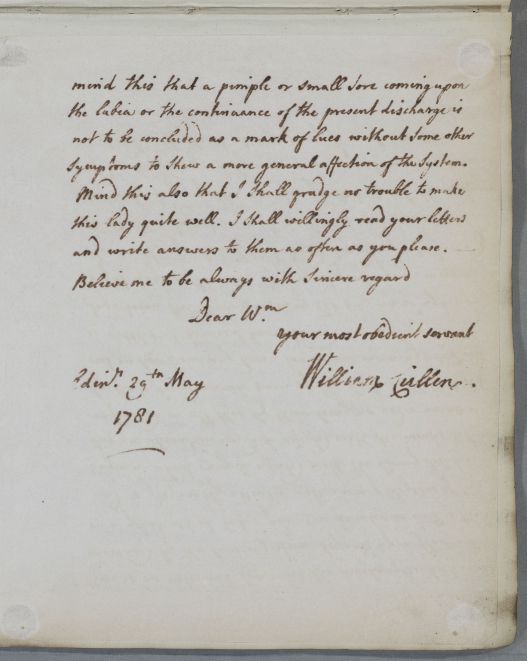 mind this that a pimple or small sore coming upon
the labia or the continuance of the present discharge is
not to be concluded as a mark of lues without some other
symptoms to shew a more general affection of the system.
Mind this also that I shall grudge no trouble to make
this lady quite well. I shall willingly read your letters
and write answers to them as often as you please.
Believe me to be always with sincere regard
Dear Wm.
your most obedient servant
Edinr. 29th May
William Cullen.
1781